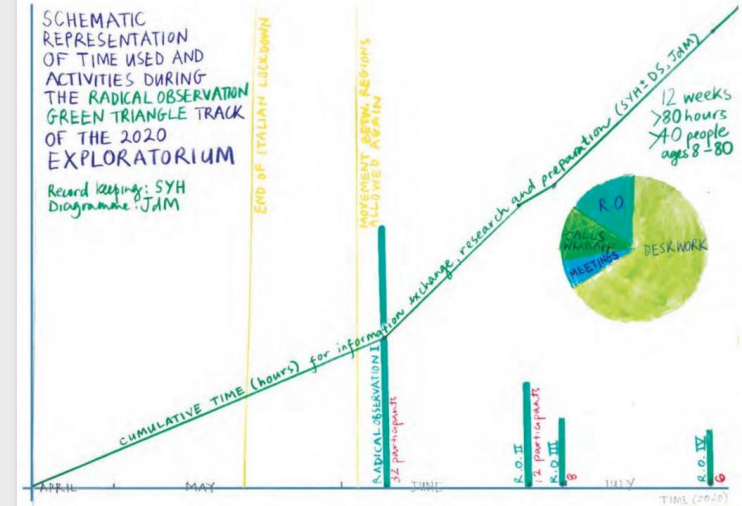 SCHEMATIC
REPRESENTATION
OF TIME USED AND
ACTIVITIES DURING
THE RADICAL OBSERVATION
GREEN TRIANGLE TRACK
OF THE 2020
EXPLORATORIUM
Record keeping: SYH
Diagramme: JdM
END OF ITALIAN LOCKDOWN
MOVEMENT BETW. REGIONS
ALLOWED AGAIN
CUMULATIVE TIME (hours) for information exchange, research and preparation (SYH± DS, JdM)
12 weeks
>80 hours
>40 people
ages 8-80
R.O.
CALLS
MEETINGS
DESKWORK
RADICAL OBSERVATION I
32 participants
R.O. II
12 participants
R.O. III
8
R.O. IV
6
APRIL
MAY
JUNE
JULY
TIME (2020)